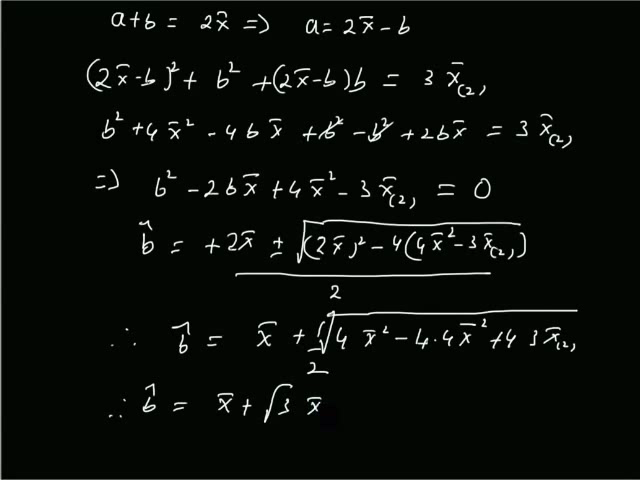 a+b = 2x̄ => a = 2x̄-b
(2x̄-b)² + b² + (2x̄-b)b = 3 x̄₍₂₎
b² + 4x̄² - 4bx̄ + b² - b² + 2bx̄ = 3 x̄₍₂₎
=> b² - 2bx̄ + 4x̄² - 3x̄₍₂₎ = 0
b̂ = +2x̄ ± √((2x̄)² - 4(4x̄² - 3x̄₍₂₎))
2
∴ b̂ = x̄ + √(4x̄² - 4·4x̄² + 4 3x̄₍₂₎)
2
∴ b̂ = x̄ + √3 x̄